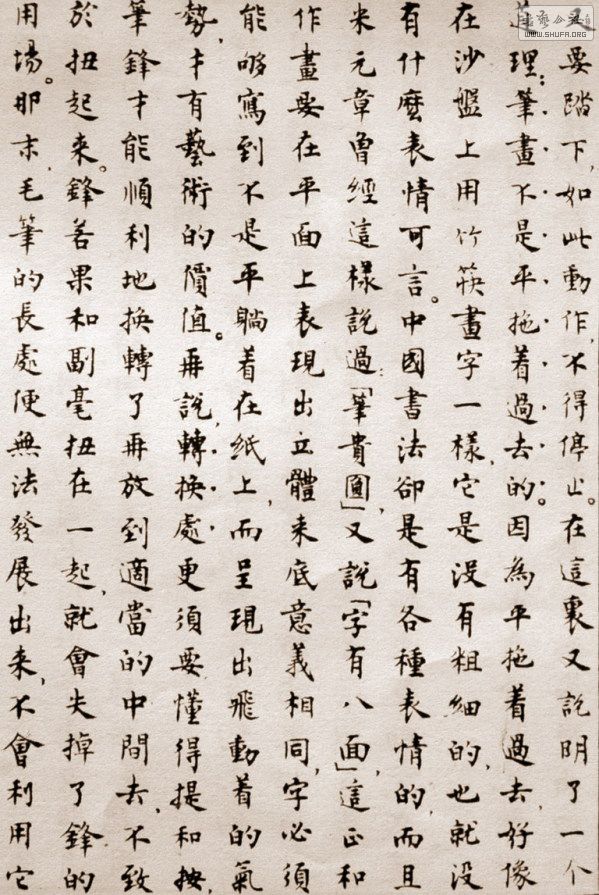 又要踏下,如此動作,不得停止。在這裏又說明了一个
道理:筆畫不是平拖着過去的。因為平拖着過去好像
在沙盤上用竹筷畫字一樣,它是没有粗細的,也就没
有什麽表情可言。中國書法卻是有各種表情的,而且
米元章曾經這樣說過:「筆貴圓」,又說「字有八面」,這正和
作畫要在平面上表現出立體来底意義相同,字必須
能够寫到不是平躺着在紙上,而呈現出飛動着的氣
勢,才有藝術的價值。再說,轉換處更須要懂得提和按,
筆鋒才能順利地換轉了再放到適當的中間去,不致
於扭起来。鋒若果和副毫扭在一起,就會失掉了鋒的
用場。那末,毛筆的長處便無法發展出来,不會利用它
WWW.SHUFA.ORG